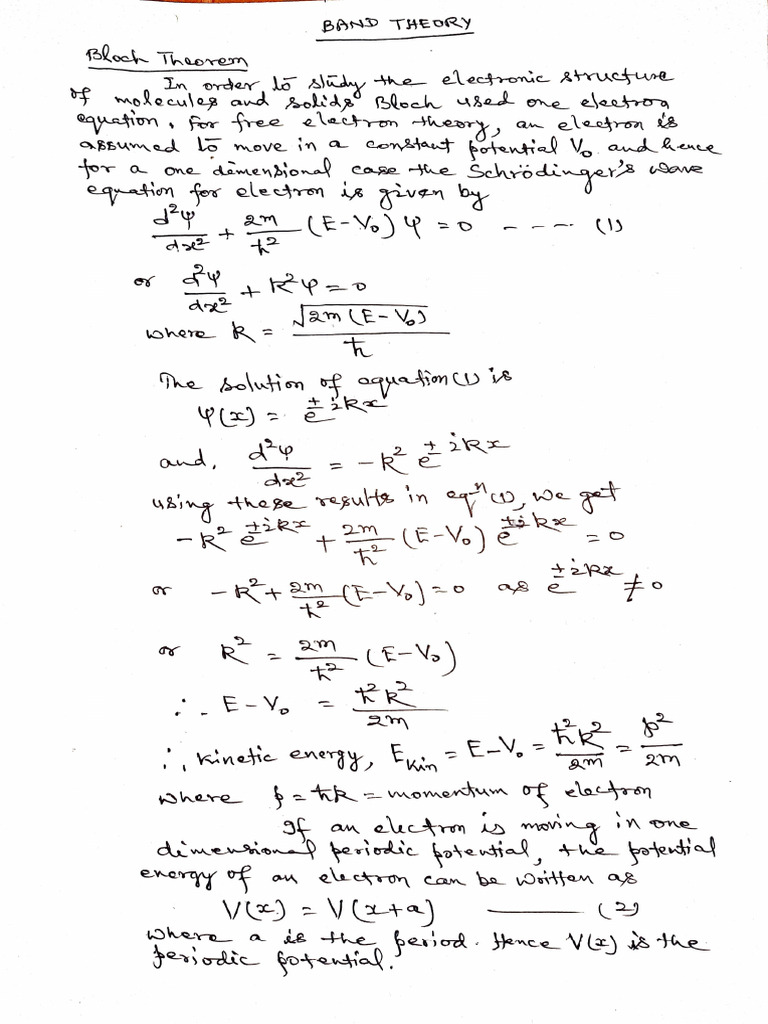 BAND THEORY
Bloch Theorem
In order to study the electronic structure
of molecules and solids Bloch used one electron
equation. For free electron theory, an electron is
assumed to move in a constant potential V₀ and hence
for a one dimensional case the Schrödinger's wave
equation for electron is given by
d²ψ/dx² + 2m/ħ² (E-V₀) ψ = 0 ---- (1)
or d²ψ/dx² + k²ψ = 0
where k = √2m(E-V₀)/ħ
The solution of equation (1) is
ψ(x) = e^±ikx
and, d²ψ/dx² = -k² e^±ikx
using these results in eqⁿ (1), we get
-k² e^±ikx + 2m/ħ² (E-V₀) e^±ikx = 0
or -k² + 2m/ħ² (E-V₀) = 0 as e^±ikx ≠ 0
or k² = 2m/ħ² (E-V₀)
∴ E-V₀ = ħ²k²/2m
∴, kinetic energy, E_kin = E-V₀ = ħ²k²/2m = p²/2m
where p = ħk = momentum of electron
If an electron is moving in one
dimensional periodic potential, the potential
energy of an electron can be written as
V(x) = V(x+a) —— (2)
where a is the period. Hence V(x) is the
periodic potential.